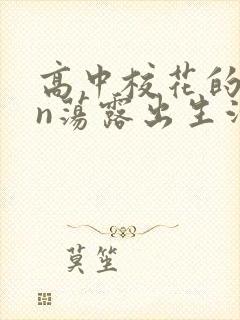 高中校花的
n荡露出生活
莫笙